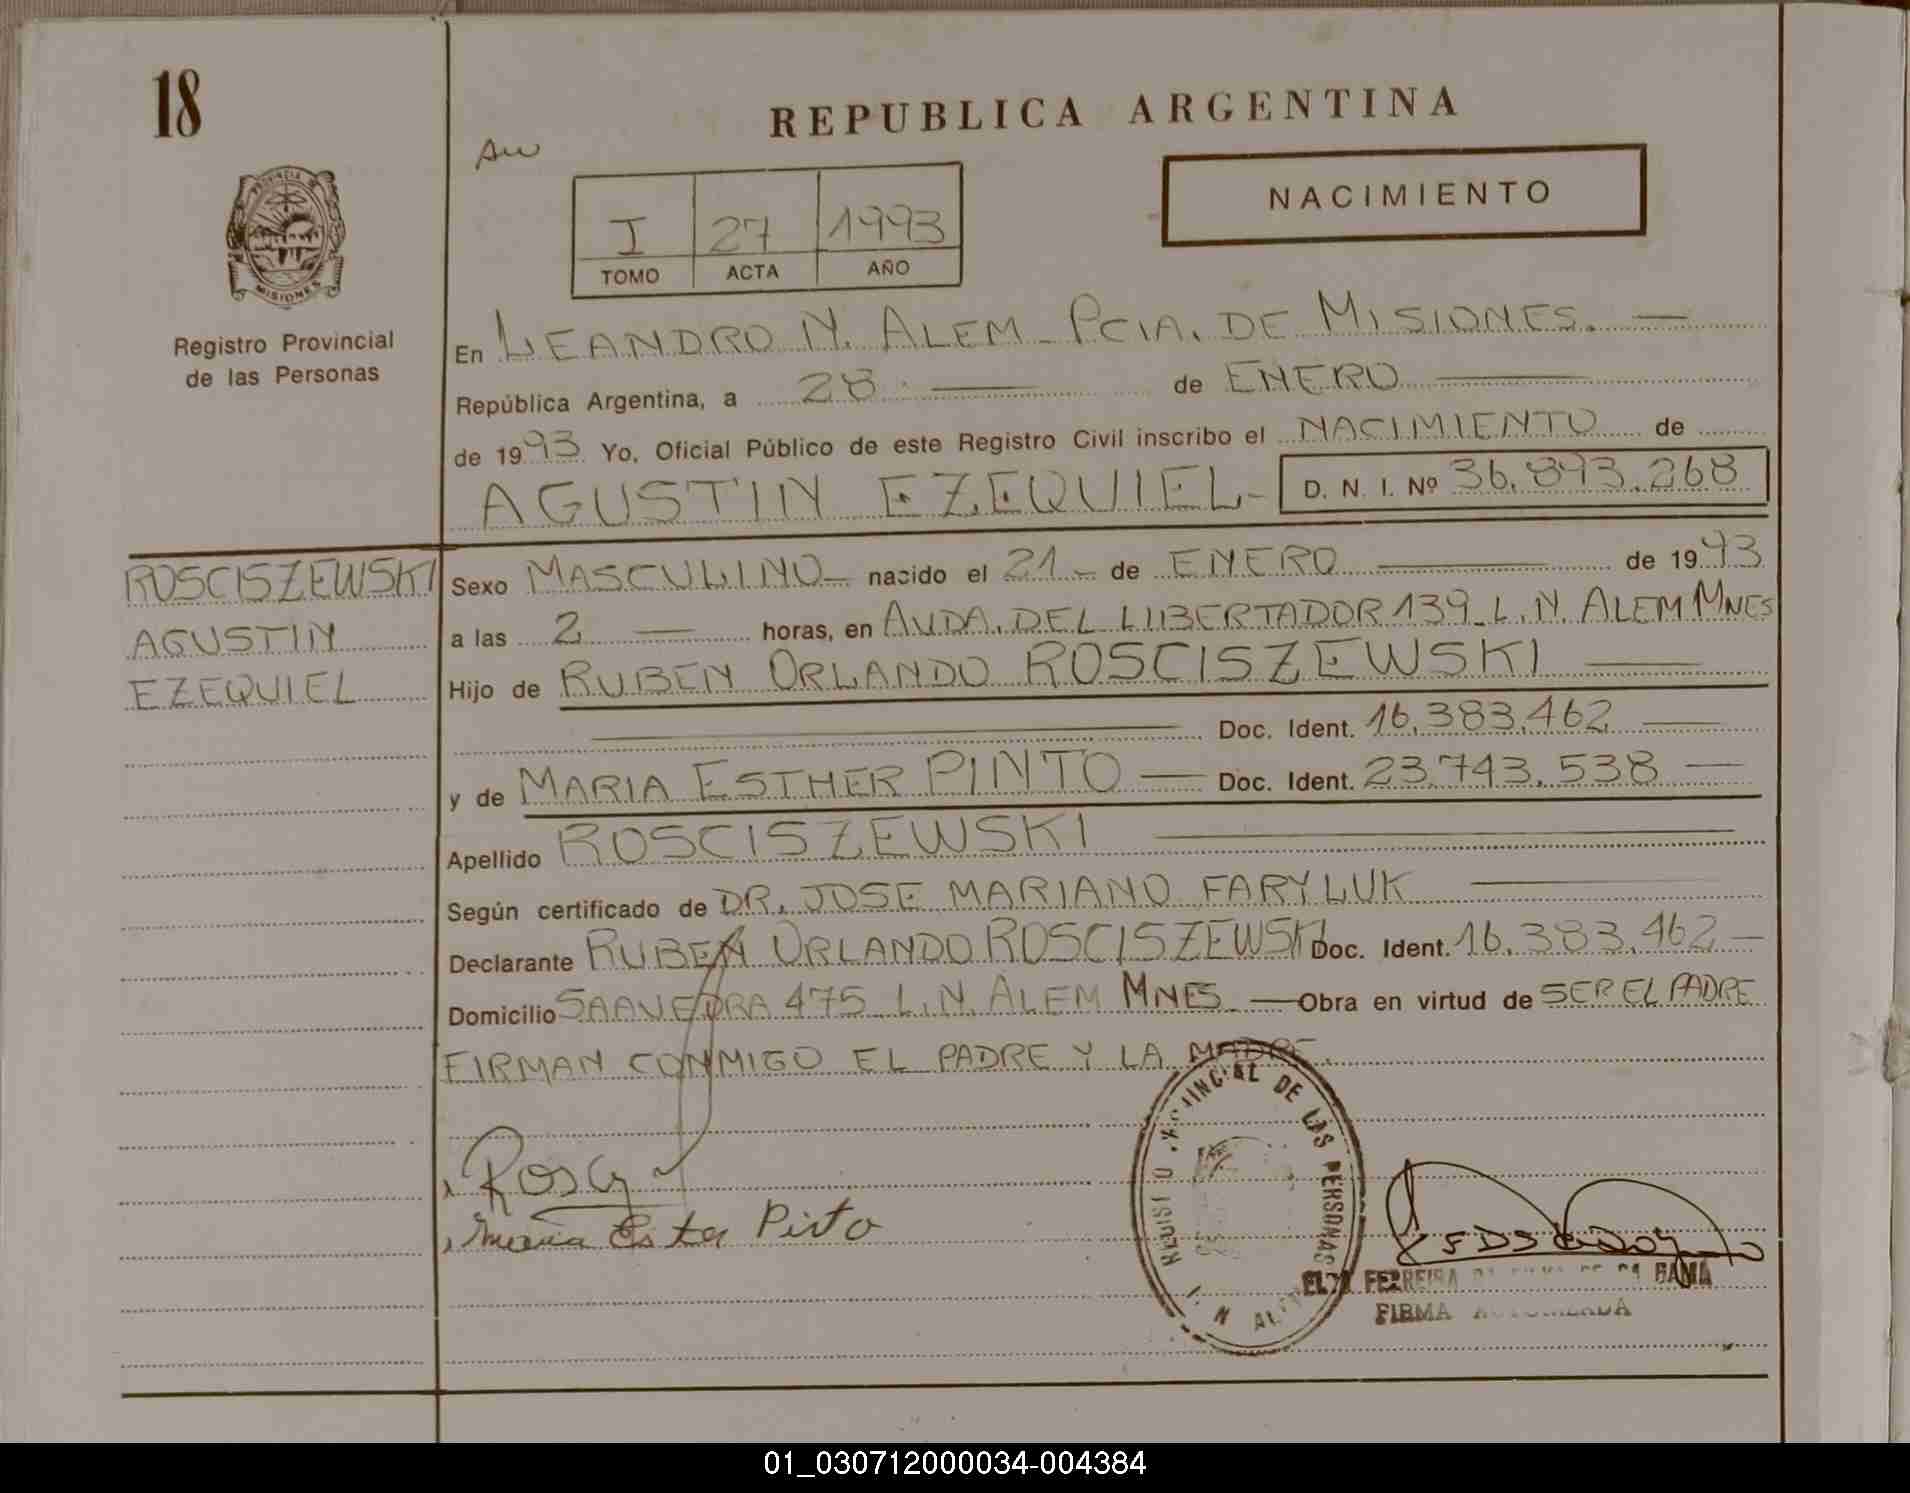 18
REPUBLICA ARGENTINA
NACIMIENTO
I 27 1993
TOMO ACTA AÑO
PROVINCIA DE
MISIONES
Registro Provincial
de las Personas
En LEANDRO N. ALEM - PCIA. DE MISIONES. —
República Argentina, a 28 — de ENERO —
de 1993 Yo, Oficial Público de este Registro Civil inscribo el NACIMIENTO de
AGUSTIN EZEQUIEL- D. N. I. Nº 36.893.268
ROSCISZEWSKI
AGUSTIN
EZEQUIEL
Sexo MASCULINO - nacido el 21 - de ENERO — de 1993
a las 2 — horas, en AVDA. DEL LIBERTADOR 139 - L. N. ALEM MNES
Hijo de RUBEN ORLANDO ROSCISZEWSKI —
— Doc. Ident. 16.383.462 —
y de MARIA ESTHER PINTO — Doc. Ident. 23.743.538 —
Apellido ROSCISZEWSKI —
Según certificado de DR. JOSE MARIANO FARYLUK —
Declarante RUBEN ORLANDO ROSCISZEWSKI Doc. Ident. 16.383.462 —
Domicilio SAAVEDRA 475 L.N. ALEM MNES. — Obra en virtud de SER EL PADRE
FIRMAN CONMIGO EL PADRE Y LA MADRE.
Maria Ester Pinto
DE LAS PERSONAS
FERREIRA DA GAMA
FIRMA AUTORIZADA
01_030712000034-004384